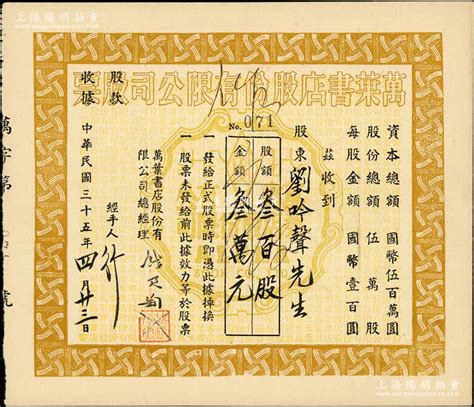 上海陽明拍賣
www.yangmingauction.com
萬葉書店股份有限公司股票
No. 071
資本總額 國幣伍百萬圓
股份總額 伍萬股
每股金額 國幣壹百圓
茲收到
股東 劉吟聲先生
股額 叁百股
金額 叁萬元
一 發給正式股票時即憑此據掉換
一 股票未發給前此據效力等於股票
萬葉書店股份有
限公司總經理
經手人
中華民國三十五年四月廿三日
股款
收據
萬字第
號
上海陽明拍賣
www.yangmingauction.com